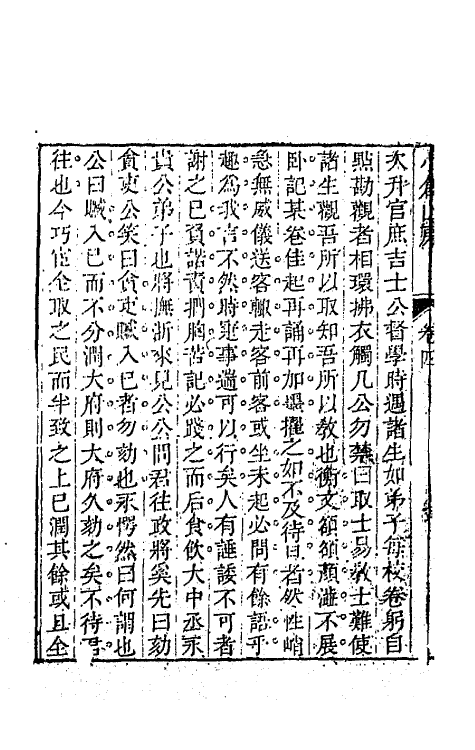 次升官庶吉士公督學時遇諸生如弟子每校卷躬自
點勘觀者相環拂衣觸几公勿禁曰取士易教士難使
諸生觀吾所以取知吾所以教也衡文額額顏澁不展
臥記某卷佳起再誦再加墨擢之如不及待旦者然性峭
急無威儀送客輒走客前客或坐未起必問有餘語乎
趣為我言不然時更事遄可以行矣人有諈諉不可者
謝之已負諾責捫胸苦記必踐之而后食飲大中丞永
貴公弟子也將撫浙來見公公問君往政將奚先曰劾
貪吏公笑曰貪吏贓入已者勿劾也永愕然曰何謂也
公曰贓入已而不分潤大府則大府久劾之矣不待君
往也今巧宦全取之民而半致之上已潤其餘或且全
卷四